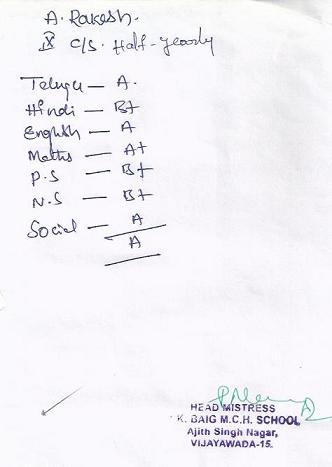 A. Rakesh.
IX C/S. Half-yearly
Telugu — A.
Hindi — B+
English — A
Maths — A+
P.S — B+
N.S — B+
Social — A
A
HEAD MISTRESS
K. BAIG M.C.H. SCHOOL
Ajith Singh Nagar,
VIJAYAWADA-15.